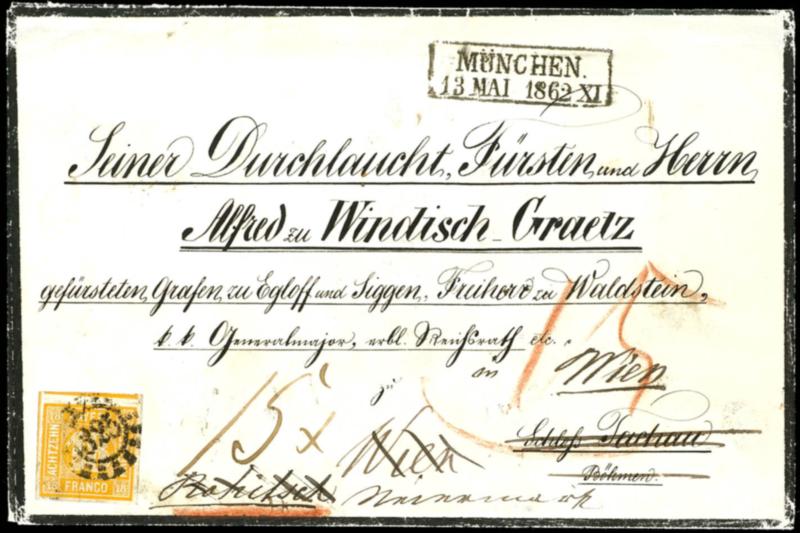 MÜNCHEN.
13 MAI 1862 XI
Seiner Durchlaucht, Fürsten und Herrn
Alfred zu Windisch-Graetz
gefürsteten Grafen zu Egloff und Siggen, Freiherr zu Waldstein,
k. k. Generalmajor, erbl. Reichsrath etc.
in
Wien
15
zu
15 x
Wien
Schloß Tachau
Böhmen.
Rohitsch
Steiermark
ACHTZEHN
325
FRANCO
18
18